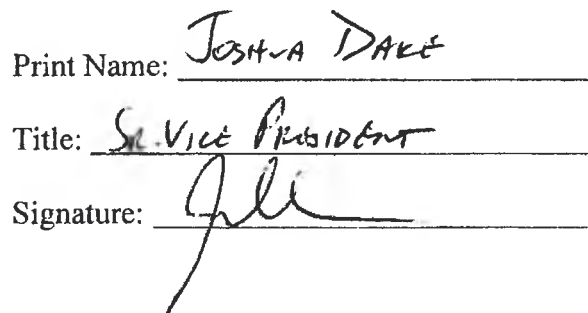 Print Name: JOSHUA DAKE
Title: SR. VICE PRESIDENT
Signature: